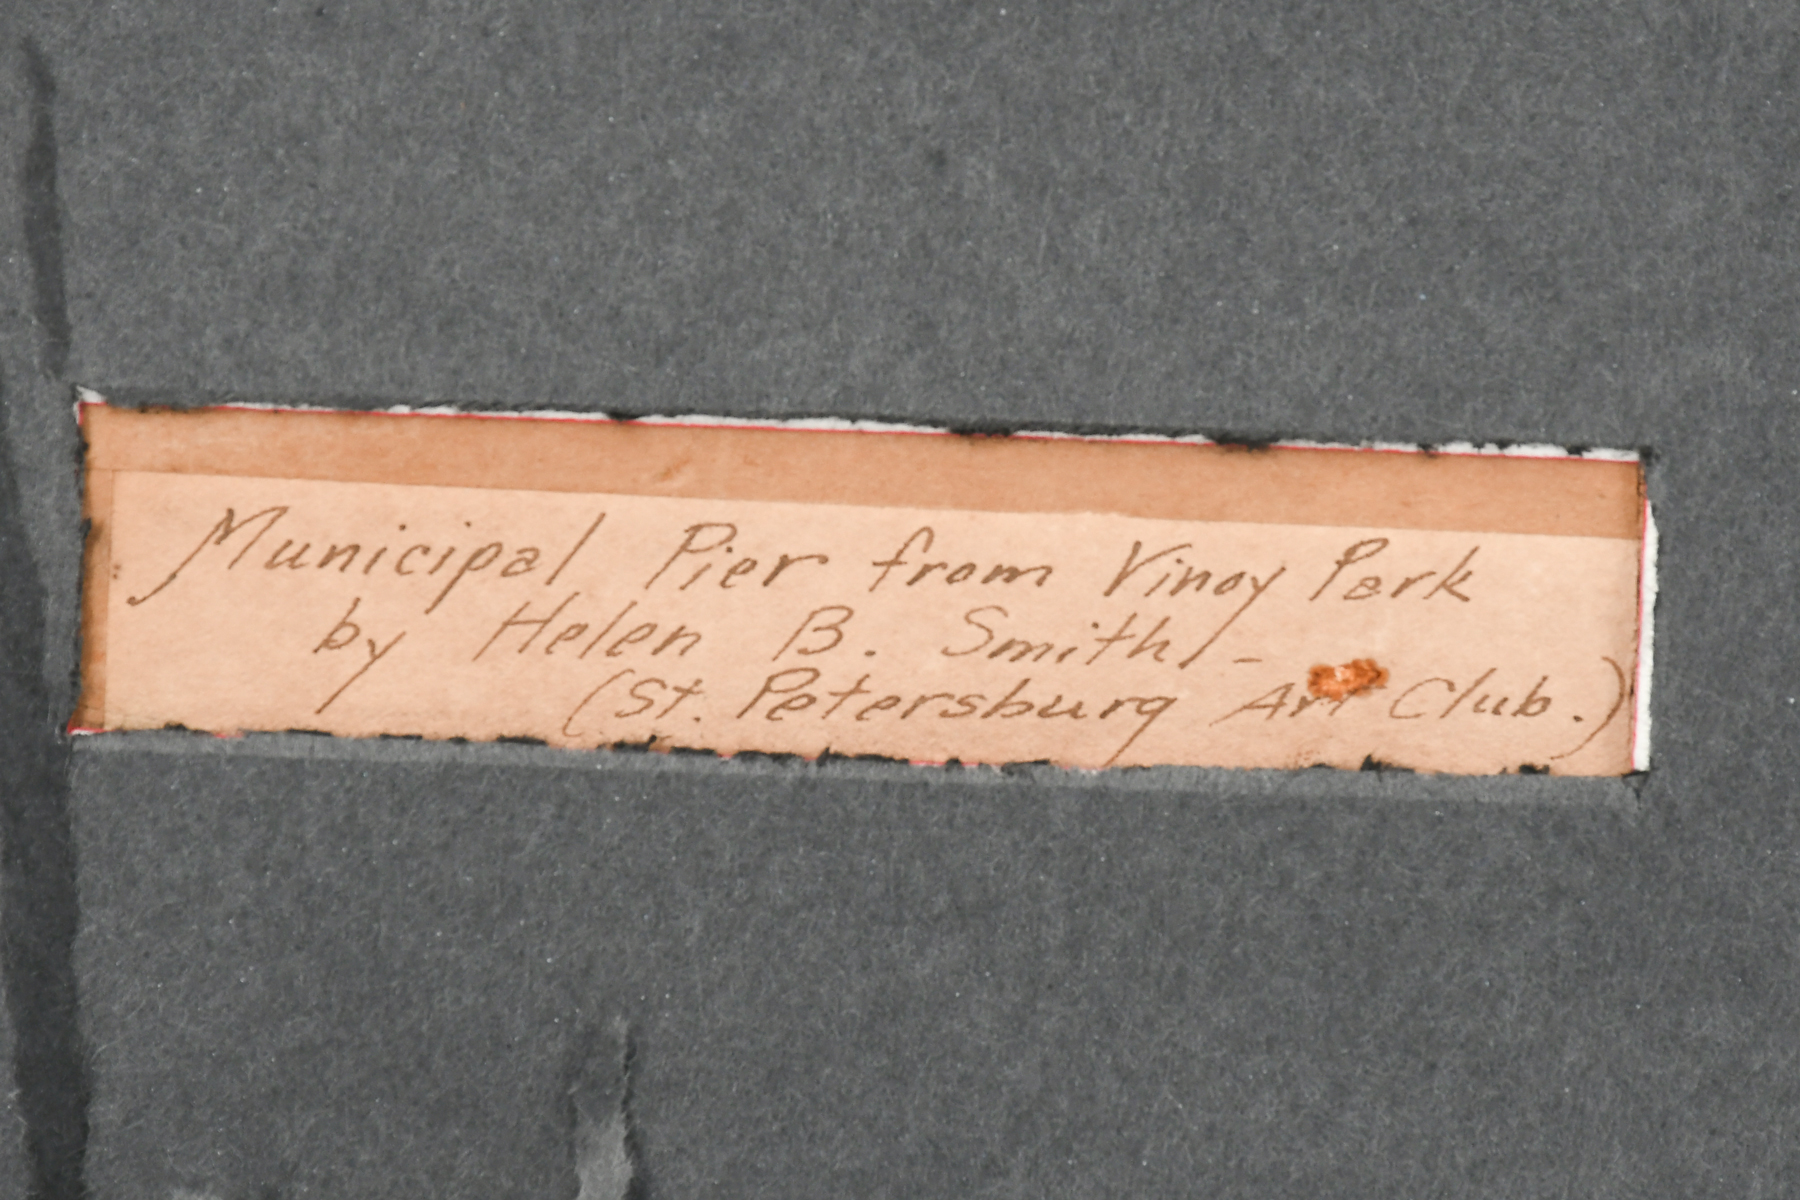 Municipal Pier from Vinoy Park
by Helen B. Smith -
(St. Petersburg Art Club.)